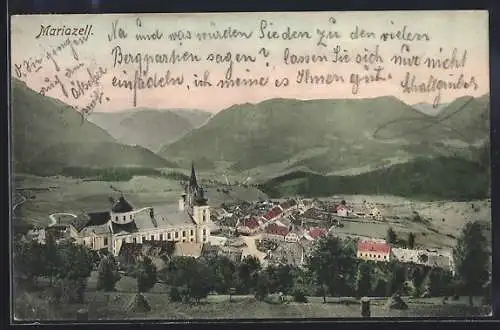 Mariazell.
Na und was würden Sie den zu den vielen
Bergpartien sagen? lassen Sie sich nur nicht
einfädeln, ich meine es Ihnen gut
Wir gingen
auf den